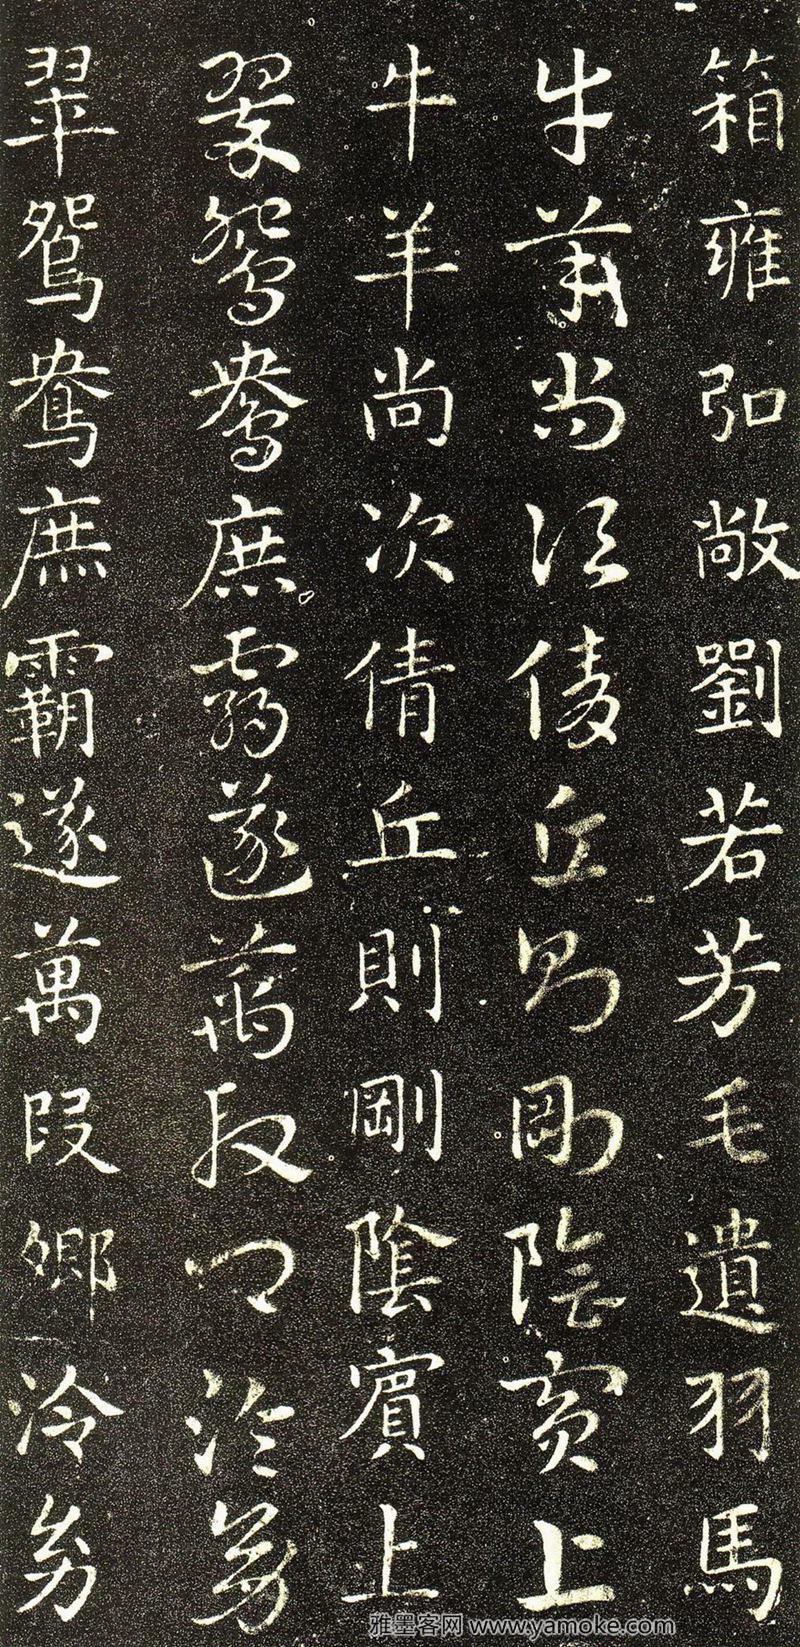 箱雍弘敞劉若芳毛遺羽馬
牛羊尚次倩丘則剛陰賓上
牛羊尚次倩丘則剛陰賓上
翠鴛鴦庶霸遂萬段卿泠幼
翠鴛鴦庶霸遂萬段卿泠幼
雅墨客网 www.yamoke.com